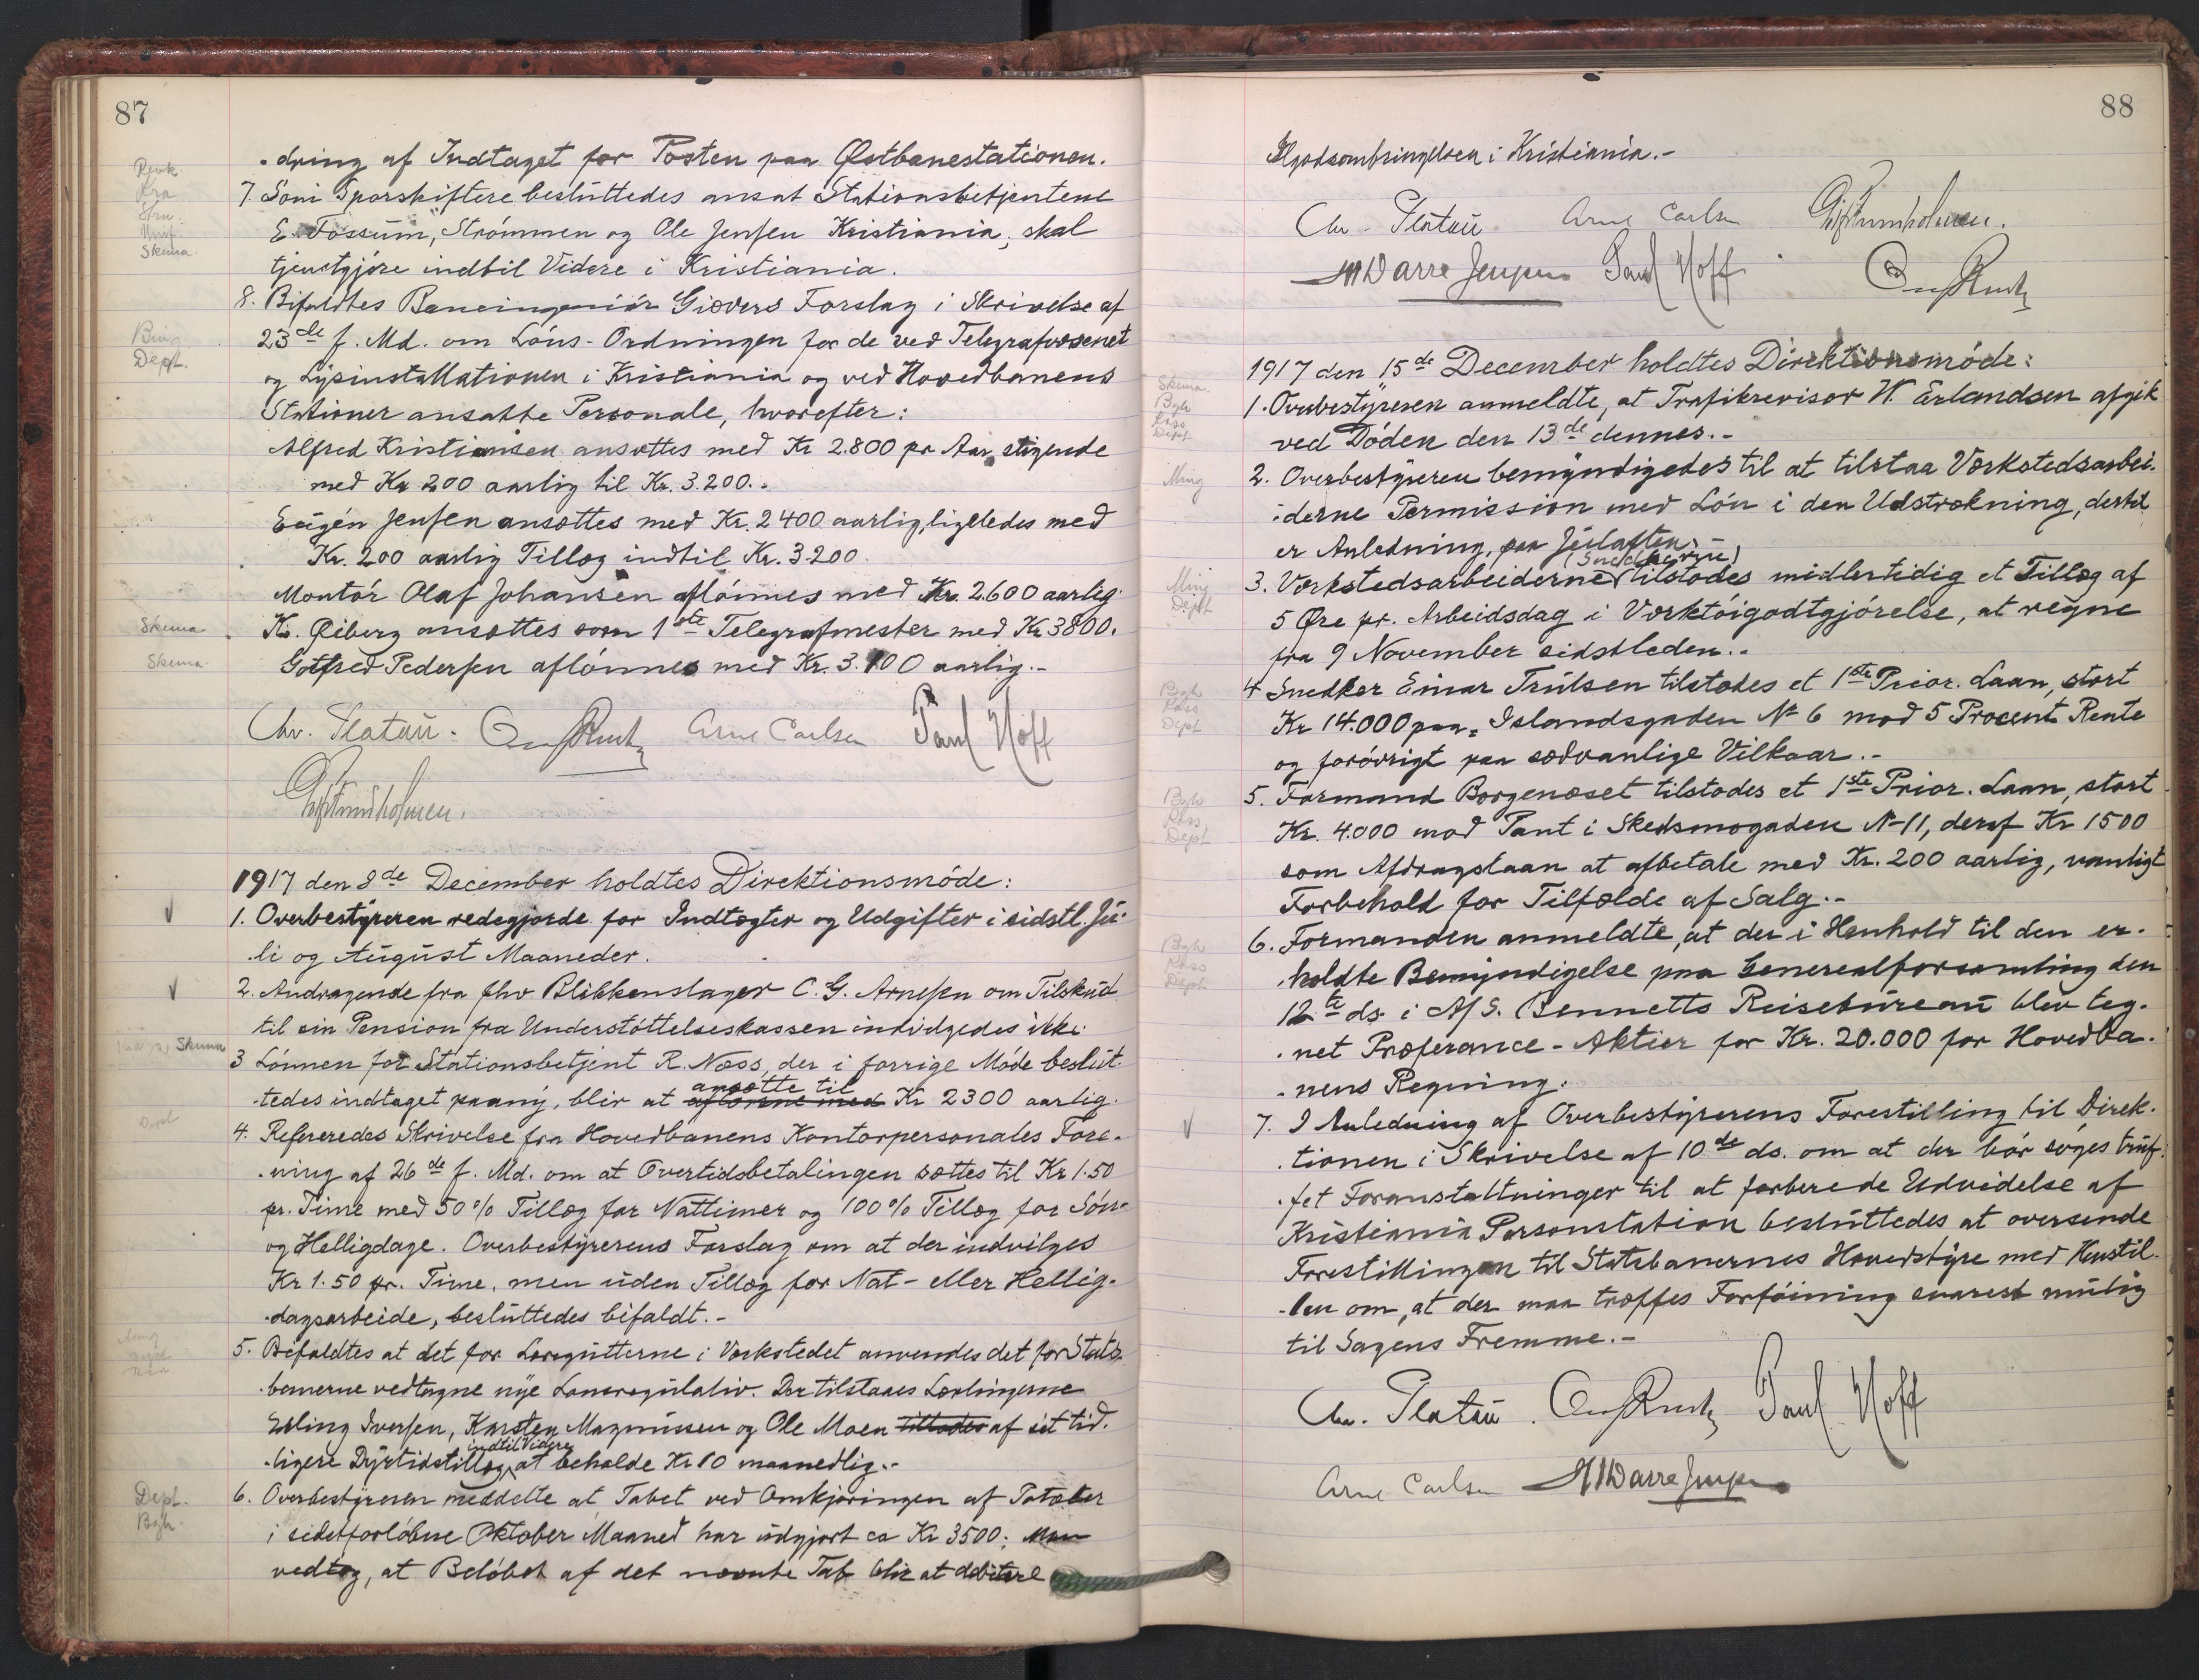 87
-dring af Indtaget for Posten paa Østbanestationen.
7. Som Sporskiftere besluttedes ansat Stationsbetjentene
E. Fossum, Strømmen og Ole Jensen Kristiania, skal
tjenstgjøre indtil Videre i Kristiania.
Skema.
8. Bifaldtes Baneingeniør Giævers Forslag i Skrivelse af
23de f. Md. om Løns-Ordningen for de ved Telegrafvæsenet
Dept.
og Lysinstallationen i Kristiania og ved Hovedbanens
Stationer ansatte Personale, hvorefter:
Alfred Kristiansen ansættes med Kr 2.800 pr Aar, stigende
med Kr 200 aarlig til Kr. 3.200.-
Eugén Jensen ansættes med Kr. 2400 aarlig, ligeledes med
Kr. 200 aarlig Tillæg indtil Kr. 3.200.
Montør Olaf Johansen aflønnes med Kr. 2.600 aarlig.
Skema
K. Øiberg ansættes som 1ste Telegrafmester med Kr 3800.
Skema
Gotfred Pedersen aflønnes med Kr. 3.100 aarlig.-
Chr. Platou. Arne Carlsen Paul Hoff
1917 den 8de December holdtes Direktionsmøde:
1. Overbestyreren redegjorde for Indtægter og Udgifter i sidstl. Ju-
-li og August Maaneder.
2. Andragende fra fhv Blikkenslager C. G. Arnesen om Tilskud
til sin Pension fra Understøttelseskassen indvilgedes ikke.
Skema
3 Lønnen for Stationsbetjent R. Næss, der i forrige Møde beslut-
-tedes indtaget paany, blir at aflønne med ansætte til Kr 2300 aarlig.
4. Refereredes Skrivelse fra Hovedbanens Kontorpersonales Fore-
-ning af 26de f. Md. om at Overtidsbetalingen sættes til Kr 1.50
pr. Time med 50% Tillæg for Nattimer og 100% Tillæg for Søn-
og Helligdage. Overbestyrerens Forslag om at der indvilges
Kr 1.50 pr. Time, men uden Tillæg for Nat- eller Hellig-
-dagsarbeide, besluttedes bifaldt.-
5. Bifaldtes at det for Læregutterne i Verkstedet anvendes det for Stats-
-banerne vedtagne nye Lønsregulativ. Der tilstaaes Lærlingerne
Erling Iversen, Karsten Magnussen og Ole Moen tilstodes af sit tid-
-ligere Dyrtidstillæg indtil Videre at beholde Kr 10 maanedlig.-
Dept.
6. Overbestyreren meddelte at Tabet ved Omkjøringen af Poteter
i sidstforløbne Oktober Maaned har udgjort ca Kr 3500; Man
vedtog, at Beløbet af det nævnte Tab blir at debitere
88
Ilgodsombringelsen i Kristiania.-
Chr. Platou Arne Carlsen
M Darre Jensen Paul Hoff
1917 den 15de December holdtes Direktionsmøde:
Skema.
1. Overbestyreren anmeldte, at Trafikrevisor W. Erlandsen afgik
ved Døden den 13de dennes.-
Ming
2. Overbestyreren bemyndigedes til at tilstaa Verkstedsarbei-
-derne Permission med Løn i den Udstrækning, dertil
er Anledning, paa Juleaften.-
Ming
Dept
3. Verkstedsarbeiderne (Snedkerne) tilstodes midlertidig et Tillæg af
5 Øre pr. Arbeidsdag i Verktøigodtgjørelse, at regne
fra 9 November sidstleden.-
4 Snedker Einar Trulsen tilstodes et 1ste Prior. Laan, stort
Kr 14.000 paa Islandsgaden No 6 mod 5 Procent Rente
Dept
og forøvrigt paa sædvanlige Vilkaar.-
5. Formand Borgenæset tilstodes et 1ste Prior. Laan, stort
Kr. 4.000 mod Pant i Skedsmogaden N-11, deraf Kr 1500
Dept
som Afdragslaan at afbetale med Kr. 200 aarlig, vanligt
Forbehold for Tilfælde af Salg.-
6. Formanden anmeldte, at der i Henhold til den er-
-holdte Bemyndigelse paa Generealforsamling den
Dept
12te ds. i A/S. Bennetts Reisebureau blev teg-
-net Præferance-Aktier for Kr. 20.000 for Hovedba-
-nens Regning.
7. I Anledning af Overbestyrerens Forestilling til Direk-
-tionen i Skrivelse af 10de ds. om at der bør søges truf-
-fet Foranstaltninger til at forberede Udvidelse af
Kristiania Personstation besluttedes at oversende
Forestillingen til Statsbanernes Hovedstyre med Henstil-
-len om, at der maa træffes Forføining snarest mulig
til Sagens Fremme.-
Chr. Platou. Paul Hoff
Arne Carlsen M Darre Jensen